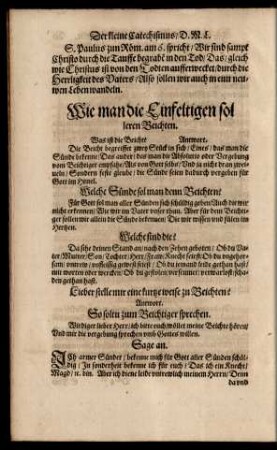 Der kleine Catechismus / D. M. L.
S. Paulus zum Röm. am 6. spricht / Wir sind sampt
Christo durch die Tauffe begrabē in den Tod / Das / gleich
wie Christus ist von den Todten aufferwecket / durch die
Herrligkeit des Vaters / Also sollen wir auch in eim newen
Leben wandeln.
Wie man die Einfeltigen sol
leren Beichten.
Was ist die Beicht? Antwort.
Die Beicht begreiffet zwey Stück in sich / Eines / das man die
Sünde bekenne / Das ander / das man die Absolutio oder Vergebung
vom Beichtiger empfahe / Als von Gott selbs / Und ja nicht dran zweiuele /
Sondern feste gleube / die Sünde seien dadurch vergeben für
Gott im Himel.
Welche Sünde sol man denn Beichten?
Für Gott sol man aller Sünden sich schüldig geben / Auch die wir
nicht erkennen / Wie wir im Vater vnser thun. Aber für dem Beichtiger
sollen wir allein die Sünde bekennen / Die wir wissen vnd fülen im
Hertzen.
Welche sind die?
Da sihe deinen Stand an / nach den Zehen geboten / Ob du Vater /
Mutter / Son / Tochter / Herr / Fraw / Knecht seiest / Ob du vngehorsam /
vntrew / vnfleissig gewest seiest / Ob du jemand leide gethan hast /
mit worten oder wercken / Ob du gestolen / verseumet / verwarlost / schaden
gethan hast.
Lieber stelle mir eine kurtze weise zu Beichten?
Antwort.
So soltu zum Beichtiger sprechen.
Wirdiger lieber Herr / ich bitte euch / wöllet meine Beichte hören /
Und mir die vergebung sprechen vmb Gottes willen.
Sage an.
ICh armer Sünder / bekenne mich für Gott aller Sünden schüldig /
In sonderheit bekenne ich für euch / Das ich ein Knecht /
Magd / rc. bin. Aber ich diene leider vntrewlich meinem Herrn / Denn
da vnd